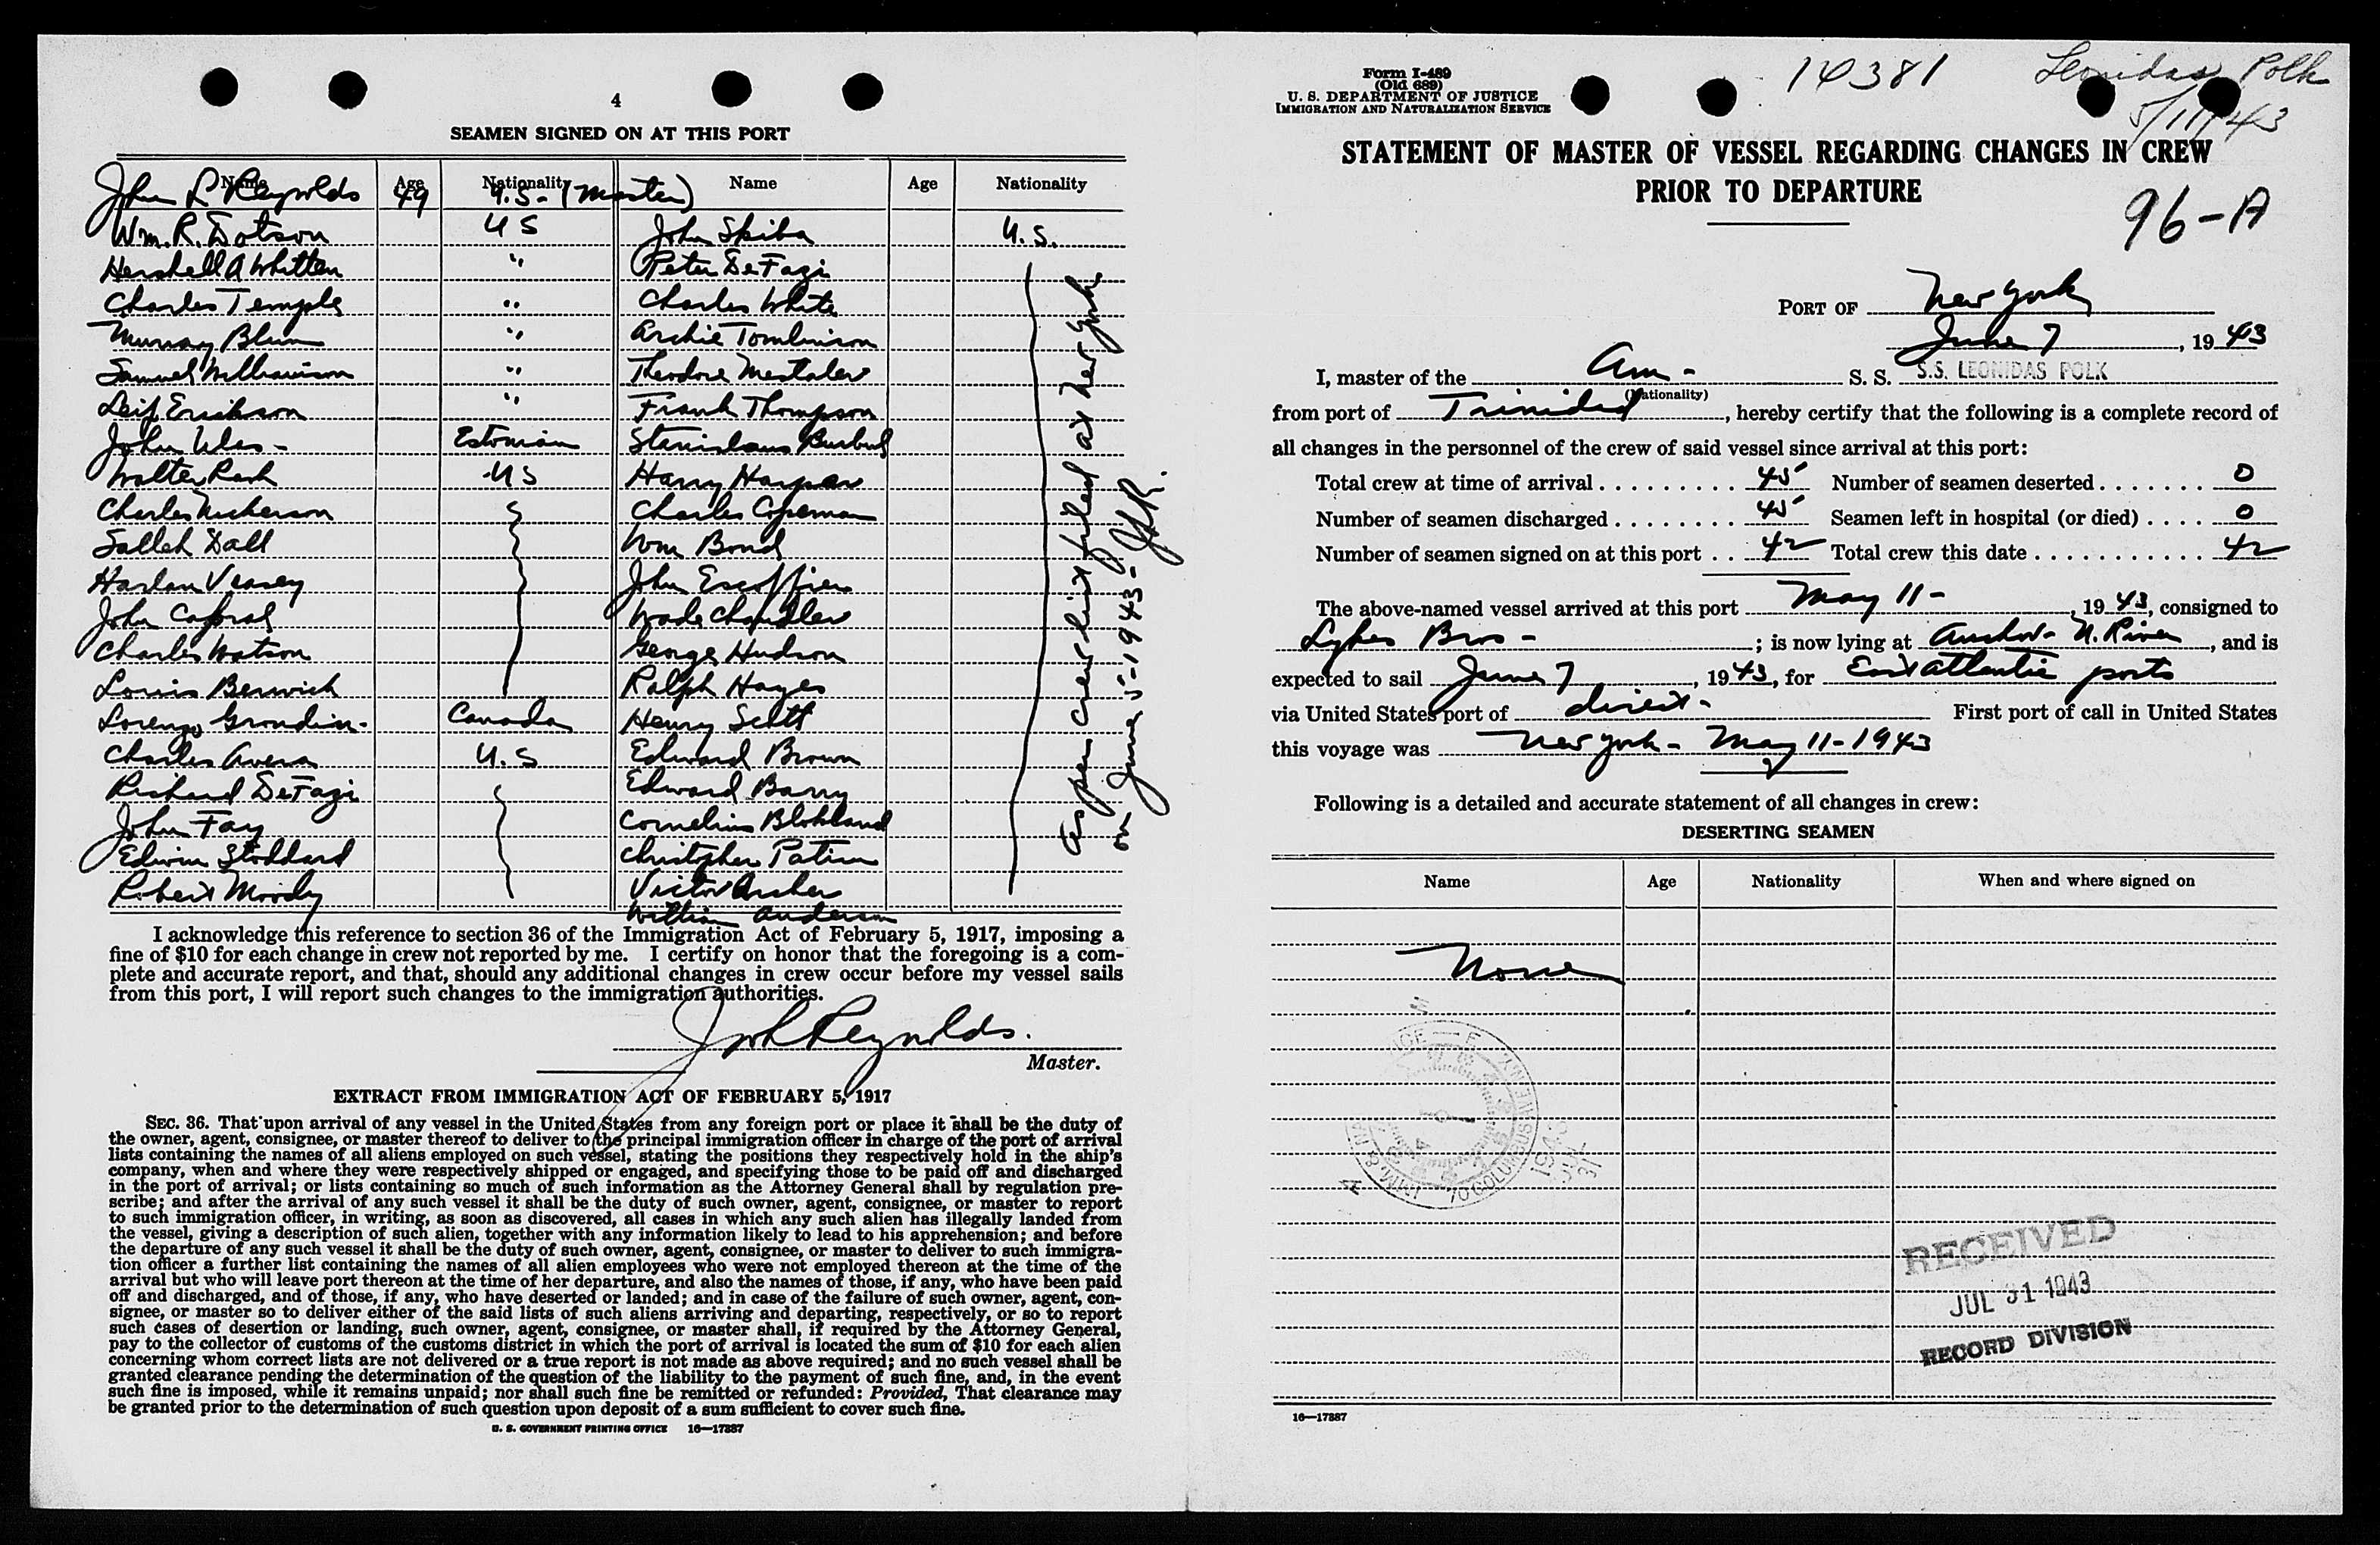 4
SEAMEN SIGNED ON AT THIS PORT
Name Age Nationality Name Age Nationality
John L Reynolds 49 U.S- (Master)
Wm. R. Dotson U S John Skiba U.S.
Hershell A Whitten " Peter DeFazi
Charles Temple " Charles White
Murray Blum " Archie Tomlinson
Samuel Williamson " Theodore
Leif Erickson " Frank Thompson
John Estonian Stanislaus
Walter US Harry Harper
Charles Nickerson Charles Copeman
Salleh Dall Wm Bond
Harlan Veasey John Escoffier
John Cabral Wade Chandler
Charles Watson George Hudson
Louis Berwick Ralph Hayes
Lorenzo Grondin- Canada Henry Scott
Charles Avera U.S Edward Brown
Richard DeFazi Edward Barry
John Fay Cornelius Blokland
Edwin Stoddard Christopher
Robert Moody Victor Archer
William Anderson
As per crew list filed at New York
on June 5-1943- JLR.
I acknowledge this reference to section 36 of the Immigration Act of February 5, 1917, imposing a
fine of $10 for each change in crew not reported by me. I certify on honor that the foregoing is a com-
plete and accurate report, and that, should any additional changes in crew occur before my vessel sails
from this port, I will report such changes to the immigration authorities.
Jno L Reynolds.
Master.
EXTRACT FROM IMMIGRATION ACT OF FEBRUARY 5, 1917
SEC. 36. That upon arrival of any vessel in the United States from any foreign port or place it shall be the duty of
the owner, agent, consignee, or master thereof to deliver to the principal immigration officer in charge of the port of arrival
lists containing the names of all aliens employed on such vessel, stating the positions they respectively hold in the ship's
company, when and where they were respectively shipped or engaged, and specifying those to be paid off and discharged
in the port of arrival; or lists containing so much of such information as the Attorney General shall by regulation pre-
scribe; and after the arrival of any such vessel it shall be the duty of such owner, agent, consignee, or master to report
to such immigration officer, in writing, as soon as discovered, all cases in which any such alien has illegally landed from
the vessel, giving a description of such alien, together with any information likely to lead to his apprehension; and before
the departure of any such vessel it shall be the duty of such owner, agent, consignee, or master to deliver to such immigra-
tion officer a further list containing the names of all alien employees who were not employed thereon at the time of the
arrival but who will leave port thereon at the time of her departure, and also the names of those, if any, who have been paid
off and discharged, and of those, if any, who have deserted or landed; and in case of the failure of such owner, agent, con-
signee, or master so to deliver either of the said lists of such aliens arriving and departing, respectively, or so to report
such cases of desertion or landing, such owner, agent, consignee, or master shall, if required by the Attorney General,
pay to the collector of customs of the customs district in which the port of arrival is located the sum of $10 for each alien
concerning whom correct lists are not delivered or a true report is not made as above required; and no such vessel shall be
granted clearance pending the determination of the question of the liability to the payment of such fine, and, in the event
such fine is imposed, while it remains unpaid; nor shall such fine be remitted or refunded: Provided, That clearance may
be granted prior to the determination of such question upon deposit of a sum sufficient to cover such fine.
U. S. GOVERNMENT PRINTING OFFICE 16—17387
Form I-489
(Old 689)
U. S. DEPARTMENT OF JUSTICE
IMMIGRATION AND NATURALIZATION SERVICE
14381
Leonidas Polk
5/11/43
STATEMENT OF MASTER OF VESSEL REGARDING CHANGES IN CREW
PRIOR TO DEPARTURE
96-A
PORT OF New York
June 7, 1943
I, master of the Am- S. S. S.S. LEONIDAS POLK
(Nationality)
from port of Trinidad, hereby certify that the following is a complete record of
all changes in the personnel of the crew of said vessel since arrival at this port:
Total crew at time of arrival 45 Number of seamen deserted 0
Number of seamen discharged 45 Seamen left in hospital (or died) 0
Number of seamen signed on at this port 42 Total crew this date 42
The above-named vessel arrived at this port May 11-, 1943, consigned to
Lykes Bros-; is now lying at Anchor- N. River, and is
expected to sail June 7, 1943, for East Atlantic ports
via United States port of direct- First port of call in United States
this voyage was New York- May 11-1943
Following is a detailed and accurate statement of all changes in crew:
DESERTING SEAMEN
Name Age Nationality When and where signed on
None
RECEIVED
JUL 31 1943
RECORD DIVISION
16—17387